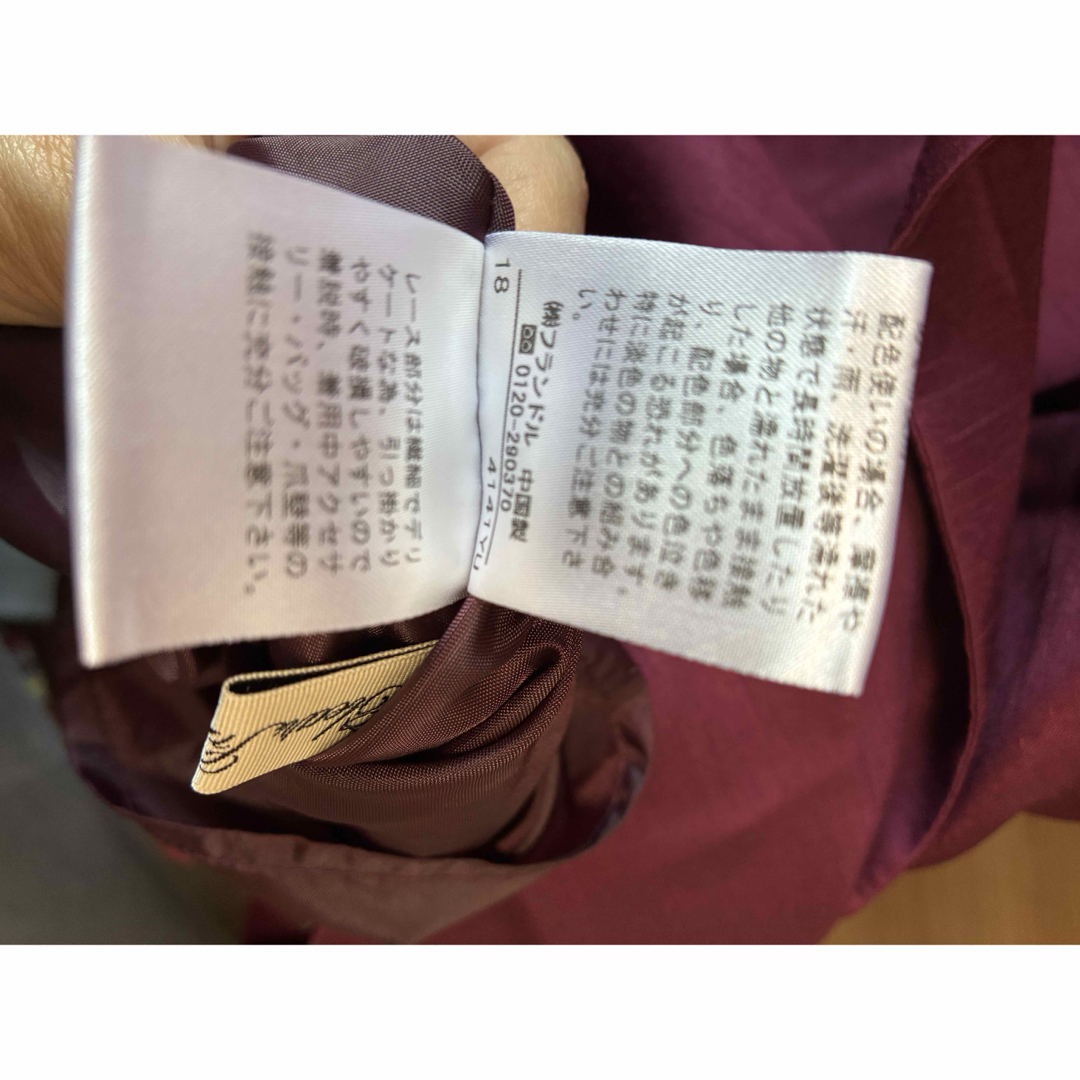 配色使いの場合、
汗・雨、洗濯後等濡れた
状態で長時間放置したり
他の物と濡れたまま接触
した場合、色落ちや色移
り、配色部分への色泣き
が起こる恐れがあります。
特に淡色の物との組み合
わせには充分ご注意下さ
い。
㈱フランドル 中国製
0120-290370
18 4141YU
レース部分は繊細でデリ
ケートな為、引っ掛かり
やすく破損しやすいので
着脱時、着用中アクセサ
リー・バッグ・爪等の
接触に充分ご注意下さい。